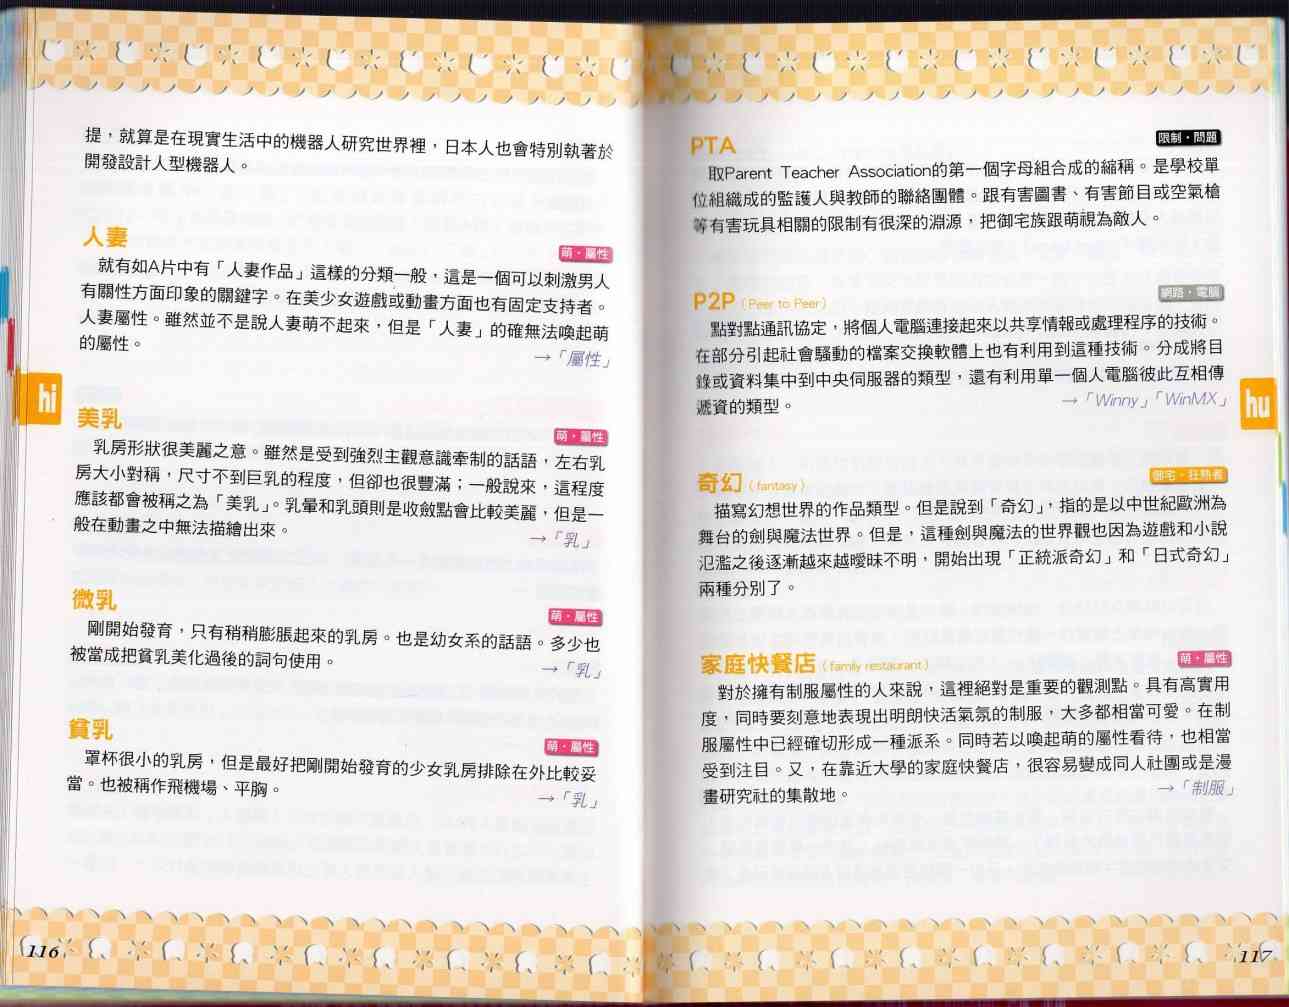 提，就算是在現實生活中的機器人研究世界裡，日本人也會特別執著於
開發設計人型機器人。
人妻
萌・屬性
就有如A片中有「人妻作品」這樣的分類一般，這是一個可以刺激男人
有關性方面印象的關鍵字。在美少女遊戲或動畫方面也有固定支持者。
人妻屬性。雖然並不是說人妻萌不起來，但是「人妻」的確無法喚起萌
的屬性。
→「屬性」
hi
美乳
萌・屬性
乳房形狀很美麗之意。雖然是受到強烈主觀意識牽制的話語，左右乳
房大小對稱，尺寸不到巨乳的程度，但卻也很豐滿；一般說來，這程度
應該都會被稱之為「美乳」。乳暈和乳頭則是收斂點會比較美麗，但是一
般在動畫之中無法描繪出來。
→「乳」
微乳
萌・屬性
剛開始發育，只有稍稍膨脹起來的乳房。也是幼女系的話語。多少也
被當成把貧乳美化過後的詞句使用。
→「乳」
貧乳
萌・屬性
罩杯很小的乳房，但是最好把剛開始發育的少女乳房排除在外比較妥
當。也被稱作飛機場、平胸。
→「乳」
116
PTA
限制・問題
取Parent Teacher Association的第一個字母組合成的縮稱。是學校單
位組織成的監護人與教師的聯絡團體。跟有害圖書、有害節目或空氣槍
等有害玩具相關的限制有很深的淵源，把御宅族跟萌視為敵人。
P2P（Peer to Peer）
網路・電腦
點對點通訊協定，將個人電腦連接起來以共享情報或處理程序的技術。
在部分引起社會騷動的檔案交換軟體上也有利用到這種技術。分成將目
錄或資料集中到中央伺服器的類型，還有利用單一個人電腦彼此互相傳
遞資的類型。
→「Winny」「WinMX」
hu
奇幻（fantasy）
御宅・狂熱者
描寫幻想世界的作品類型。但是說到「奇幻」，指的是以中世紀歐洲為
舞台的劍與魔法世界。但是，這種劍與魔法的世界觀也因為遊戲和小說
氾濫之後逐漸越來越曖昧不明，開始出現「正統派奇幻」和「日式奇幻」
兩種分別了。
家庭快餐店（family restaurant）
萌・屬性
對於擁有制服屬性的人來說，這裡絕對是重要的觀測點。具有高實用
度，同時要刻意地表現出明朗快活氣氛的制服，大多都相當可愛。在制
服屬性中已經確切形成一種派系。同時若以喚起萌的屬性看待，也相當
受到注目。又，在靠近大學的家庭快餐店，很容易變成同人社團或是漫
畫研究社的集散地。
→「制服」
117